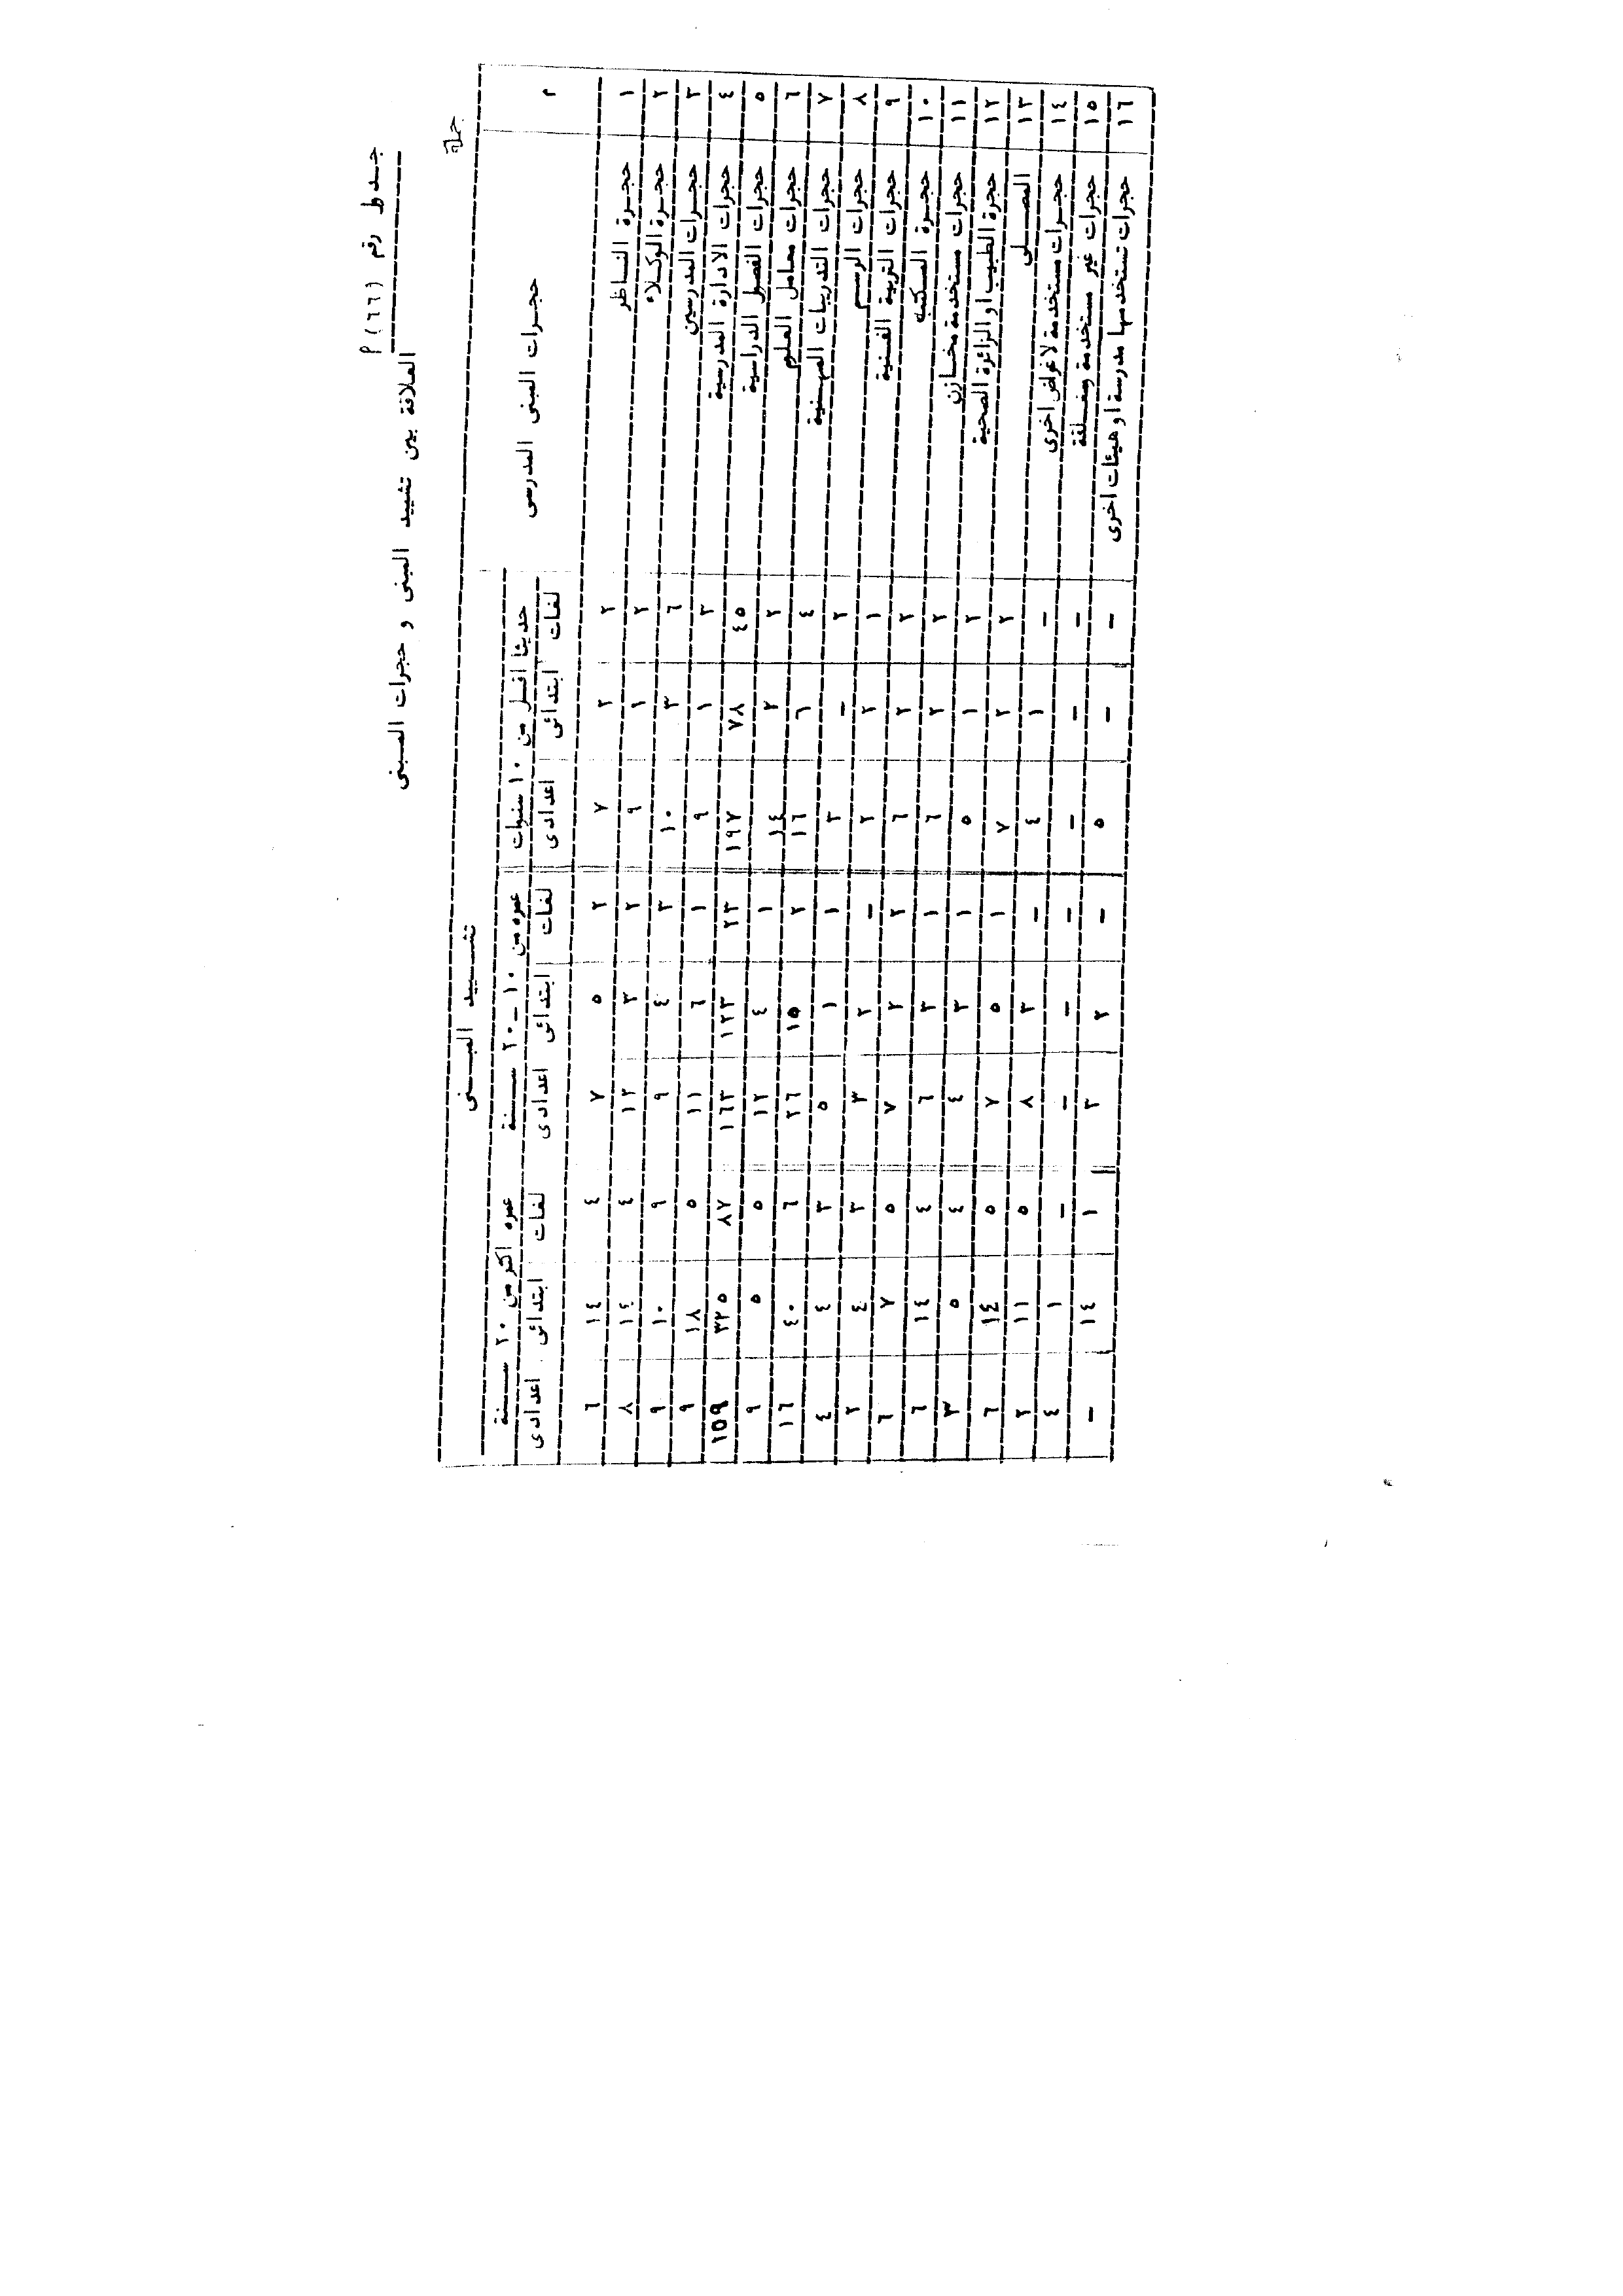 جدول رقم (٦٦) م
العلاقة بين تشييد المبنى و حجرات المبنى
جملة
تشييد المبنى
م حجرات المبنى المدرسى حديثا اقل من ١٠ سنوات عمره من ١٠ – ٢٠ سنة عمره اكثر من ٢٠ سنة
لغات ابتدائى اعدادى لغات ابتدائى اعدادى لغات ابتدائى اعدادى
١ حجرة الناظر ٢ ٢ ٧ ٢ ٥ ٧ ٤ ١٤ ٦
٢ حجرة الوكلاء ٢ ١ ٩ ٢ ٣ ١٢ ٤ ١٤ ٨
٣ حجرات المدرسين ٦ ٣ ١٠ ٣ ٤ ٩ ٩ ١٠ ٩
٤ حجرات الادارة المدرسية ٣ ١ ٩ ١ ٦ ١١ ٥ ١٨ ٩
٥ حجرات الفصول الدراسية ٤٥ ٧٨ ١٩٧ ٢٣ ١٢٣ ١٦٣ ٨٧ ٣٢٥ ١٥٩
٦ حجرات معامل العلوم ٢ ٢ ١٤ ١ ٤ ١٢ ٥ ٥ ٩
٧ حجرات التدريبات المهنية ٤ ٦ ١٦ ٢ ١٥ ٢٦ ٦ ٤٠ ١٦
٨ حجرات الرسم ٢ – ٣ ١ ١ ٥ ٣ ٤ ٤
٩ حجرات التربية الفنية ١ ٢ ٢ – ٢ ٣ ٣ ٤ ٢
١٠ حجرة المكتبه ٢ ٢ ٦ ٢ ٢ ٧ ٥ ٧ ٦
١١ حجرات مستخدمة مخازن ٢ ٢ ٦ ١ ٣ ٦ ٤ ١٤ ٦
١٢ حجرة الطبيب او الزائرة الصحية ٢ ١ ٥ ١ ٣ ٤ ٤ ٥ ٣
١٣ المصلى ٢ ٢ ٧ ١ ٥ ٧ ٥ ١٤ ٦
١٤ حجرات مستخدمة لاغراض اخرى – ١ ٤ – ٣ ٨ ٥ ١١ ٢
١٥ حجرات غير مستخدمة ومغلقة – – – – – – – ١ ٤
١٦ حجرات تستخدمها مدرسة او هيئات اخرى – – ٥ – ٢ ٣ ١ ١٤ –